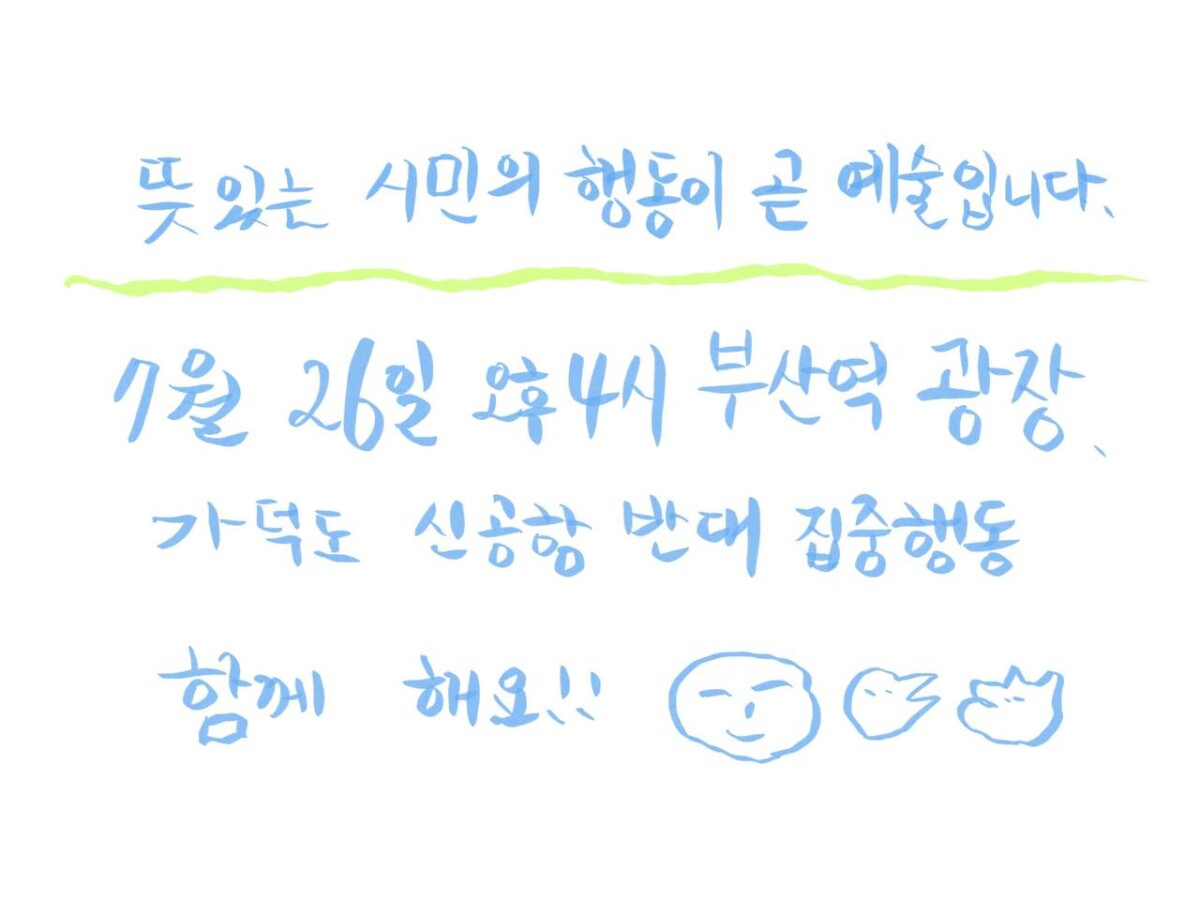 뜻있는 시민의 행동이 곧 예술입니다.
7월 26일 오후4시 부산역 광장.
가덕도 신공항 반대 집중행동
함께 해요!!